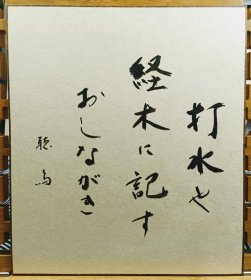 打水や
経木に記す
おしながき
聴烏